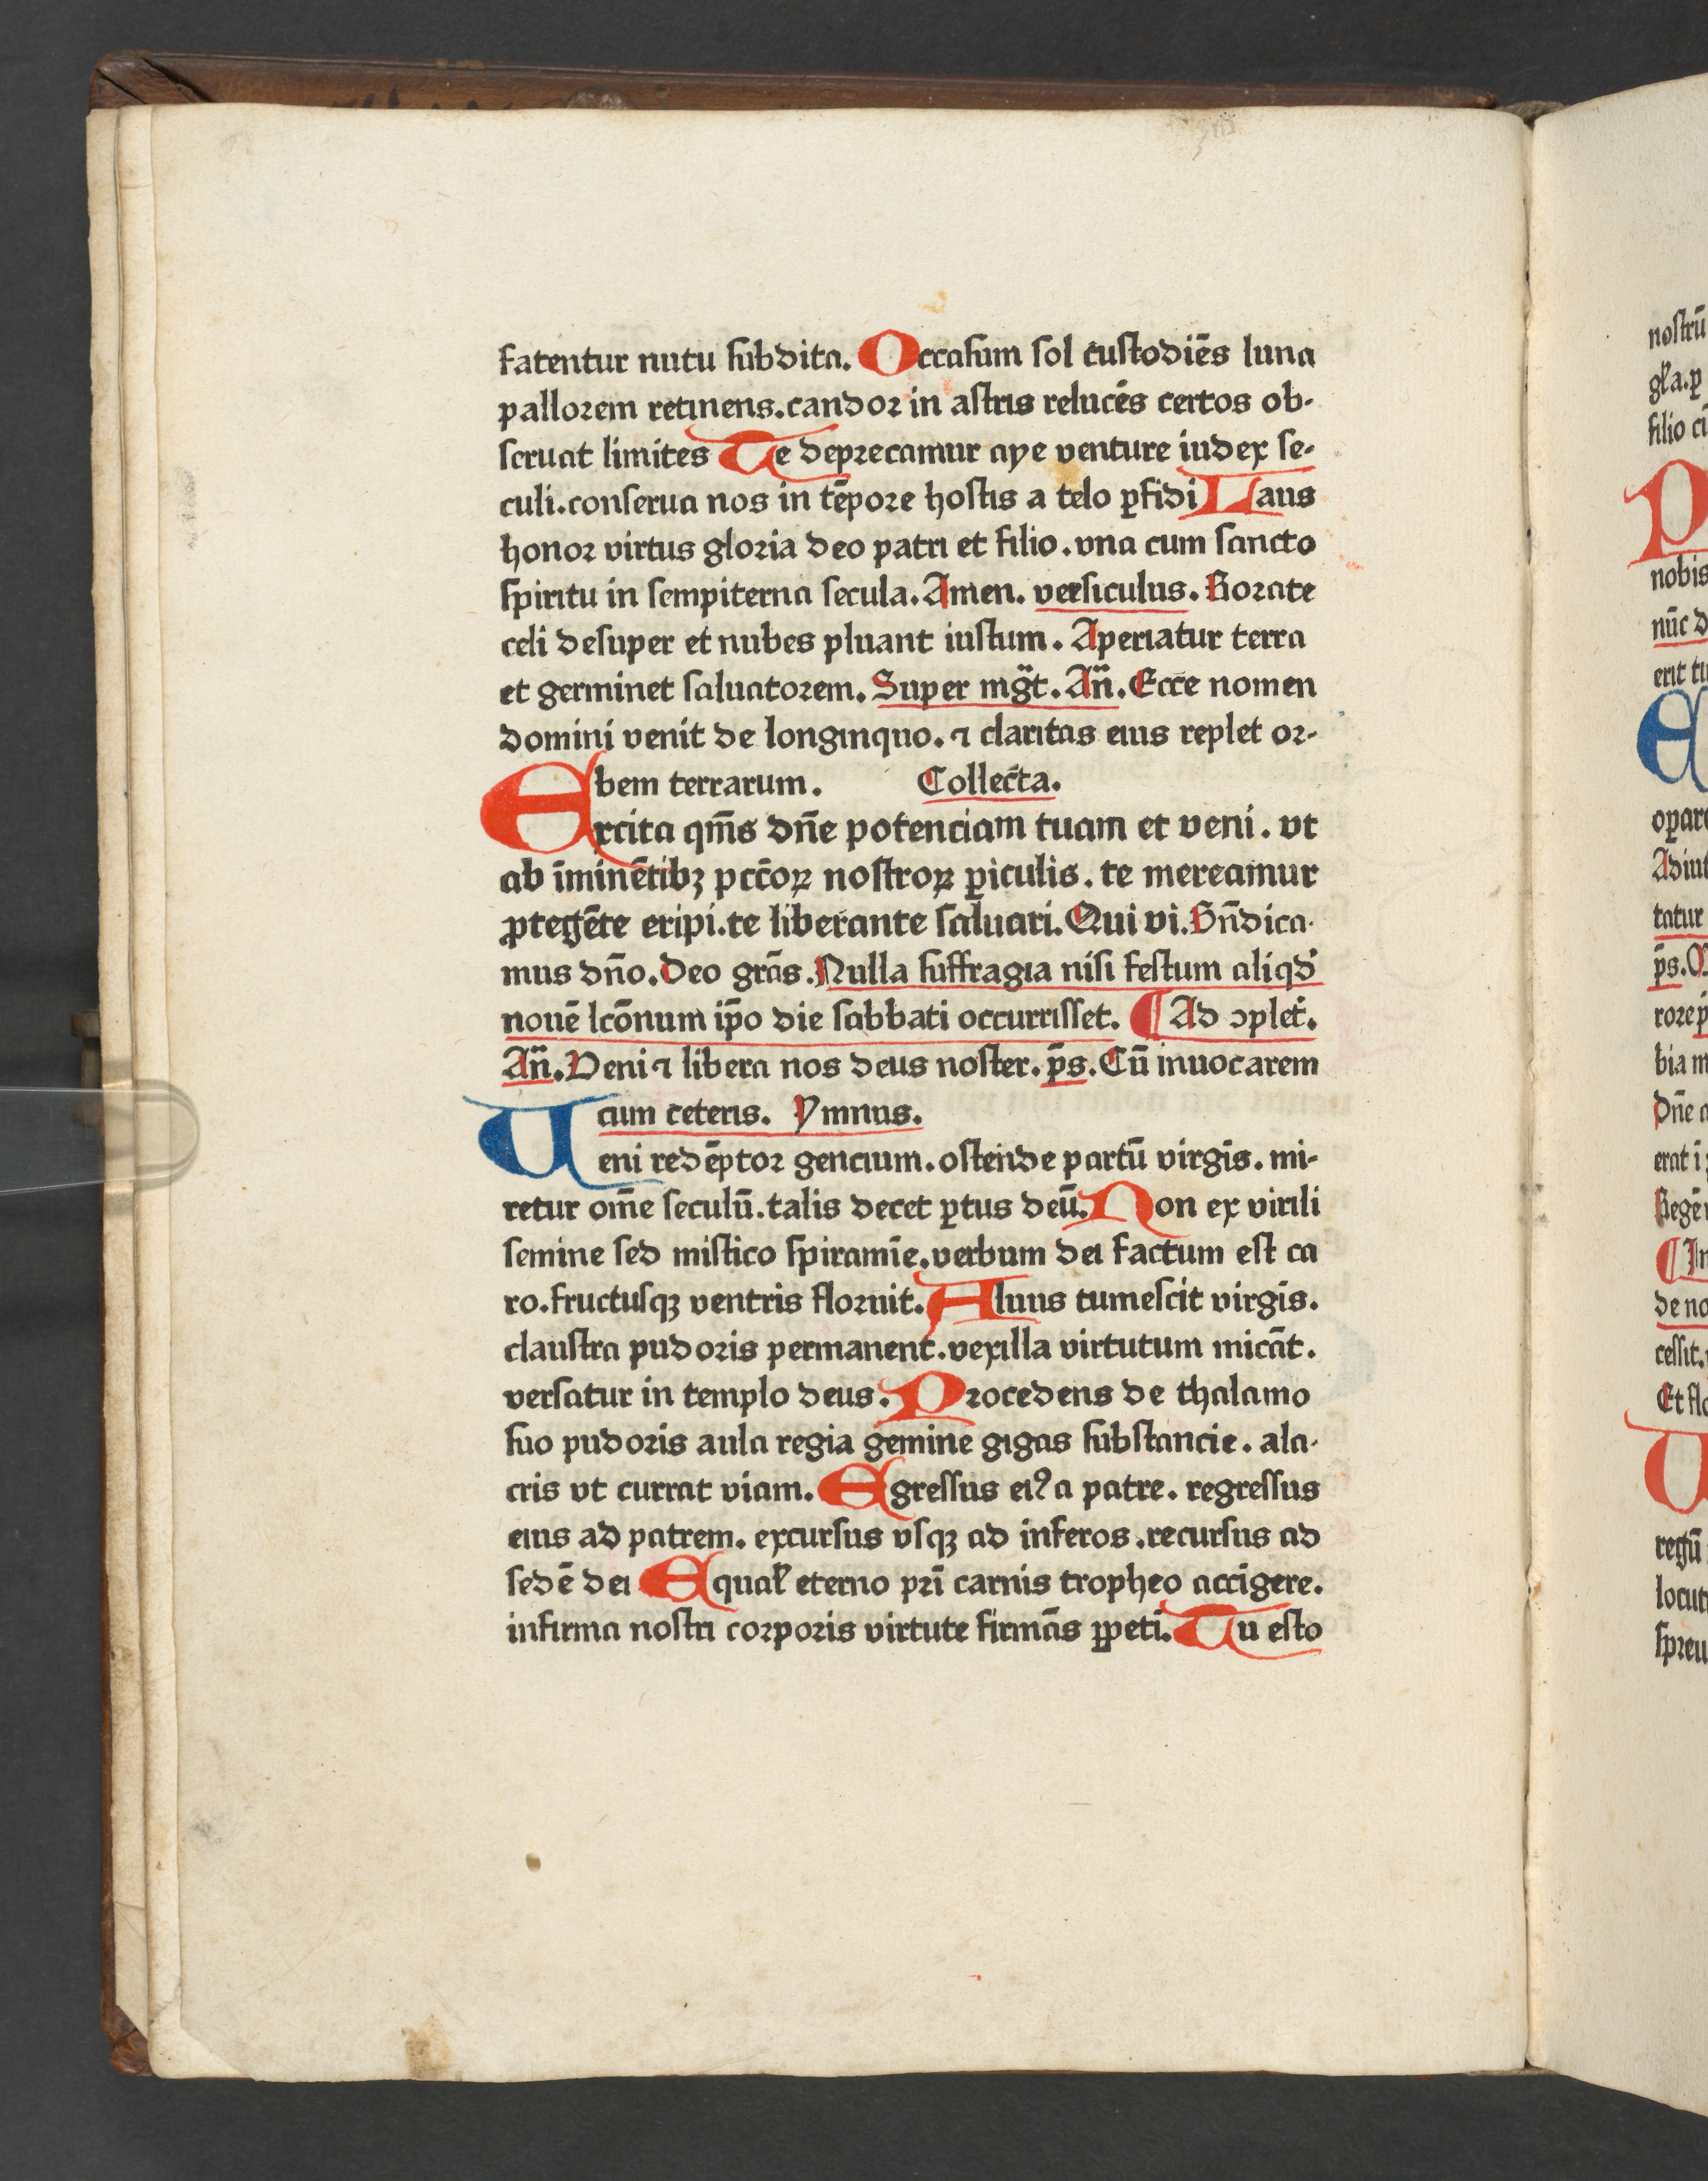 fatentur nutu subdita. Occasum sol custodiēs luna
pallorem retinens.candor in astris relucēs certos ob-
seruat limites Te deprecamur aye venture iudex se-
culi.conserua nos in tēpore hostis a telo ꝑfidi Laus
honor virtus gloria deo patri et filio.vna cum sancto
spiritu in sempiterna secula.Amen. versiculus. Rorate
celi desuper et nubes pluant iustum. Aperiatur terra
et germinet saluatorem. Super mg̃t. An̄. Ecce nomen
domini venit de longinquo. ⁊ claritas eius replet or-
bem terrarum. Collecta.
Excita qm̄s dn̄e potenciam tuam et veni. vt
ab īminētibꝫ pccōꝝ nostroꝝ ꝑiculis. te mereamur
ꝓtegēte eripi.te liberante saluari. Qui vi. Bn̄dica-
mus dn̄o. Deo grās. Nulla suffragia nisi festum aliqd̕
nouē lcōnum ip̄o die sabbati occurrisset. ¶ Ad ꝯplet̕.
An̄. Veni ⁊ libera nos deus noster. p̄s. Cū inuocarem
cum ceteris. Ymnus.
Ueni redēptor gencium.ostende partū virgīs. mi-
retur om̄e seculū.talis decet ꝑtus deū. Non ex virili
semine sed mistico spiramīe.verbum dei factum est ca
ro.fructusqꝫ ventris floruit. Aluus tumescit virgīs.
claustra pudoris permanent.vexilla virtutum micāt.
versatur in templo deus. Procedens de thalamo
suo pudoris aula regia gemine gigas substancie. ala-
cris vt currat viam. Egressus eiꝰ a patre. regressus
eius ad patrem. excursus vsqꝫ ad inferos.recursus ad
sedē dei Equal̕ eterno pri̅ carnis tropheo accigere.
infirma nostri corporis virtute firmās ꝑpeti. Tu esto
nostrū
gl̕a.ꝑ
filio cū
P
nobis
nūc d
erit tu
E
oꝑar
Adiu
tatur
p̄s.
rore
bia m
Dn̄e
erat i
Regē
¶ In
de no
cessit.
Et flo
U
regū
locut
spreu